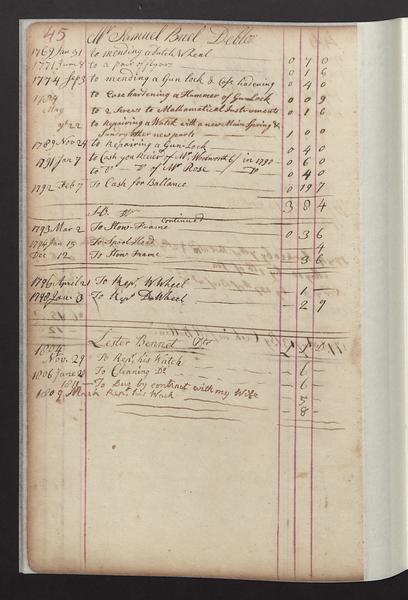 45 Mr Samuel Buel Debtor
1769 Jan 31 to mending a Watch Wheel 0 7 0
1771 June 4 to a pair of plyers 0 1 6
1774 Sep 3 to mending a Gun lock & Case hardening 0 4 0
to Case hardening a Hammer of Gun Lock 0 0 9
May to 2 Screws to Mathematical Instruments 0 1 6
22 to Repairing a Watch with a new Main Spring &
Sundry other new parts 1 0 0
1789 Nov 24 to Repairing a Gun-Lock 0 4 0
1791 Jan 7 to Cash you Reciev of Mr in 1790 0 6 0
to Do Do of Mr Rose Do 0 4 0
1792 Feb 7 To Cash for Ballance 0 19 7
Dr continued
1793 Mar 2 To Flow-Frame 0 3 6
1794 Jan 15 To Spool Head 4
Dec 12 To Flow Frame 3 6
1796 April 21 To Repg W Wheel 1
1798 Jan 3 To Repg Do Wheel 2 9
1804 Lester Bennet Dr
Nov. 29 To Repg his Watch
1806 June 28 To Cleaning Do 6
To Dug by contract with my Wife
Repg his 5
8